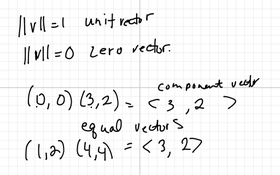 ||v|| = 1 unit vector
||v|| = 0 zero vector.
component vector
(0, 0) (3, 2) = < 3 , 2 >
equal vectors
(1, 2) (4, 4) = < 3, 2>